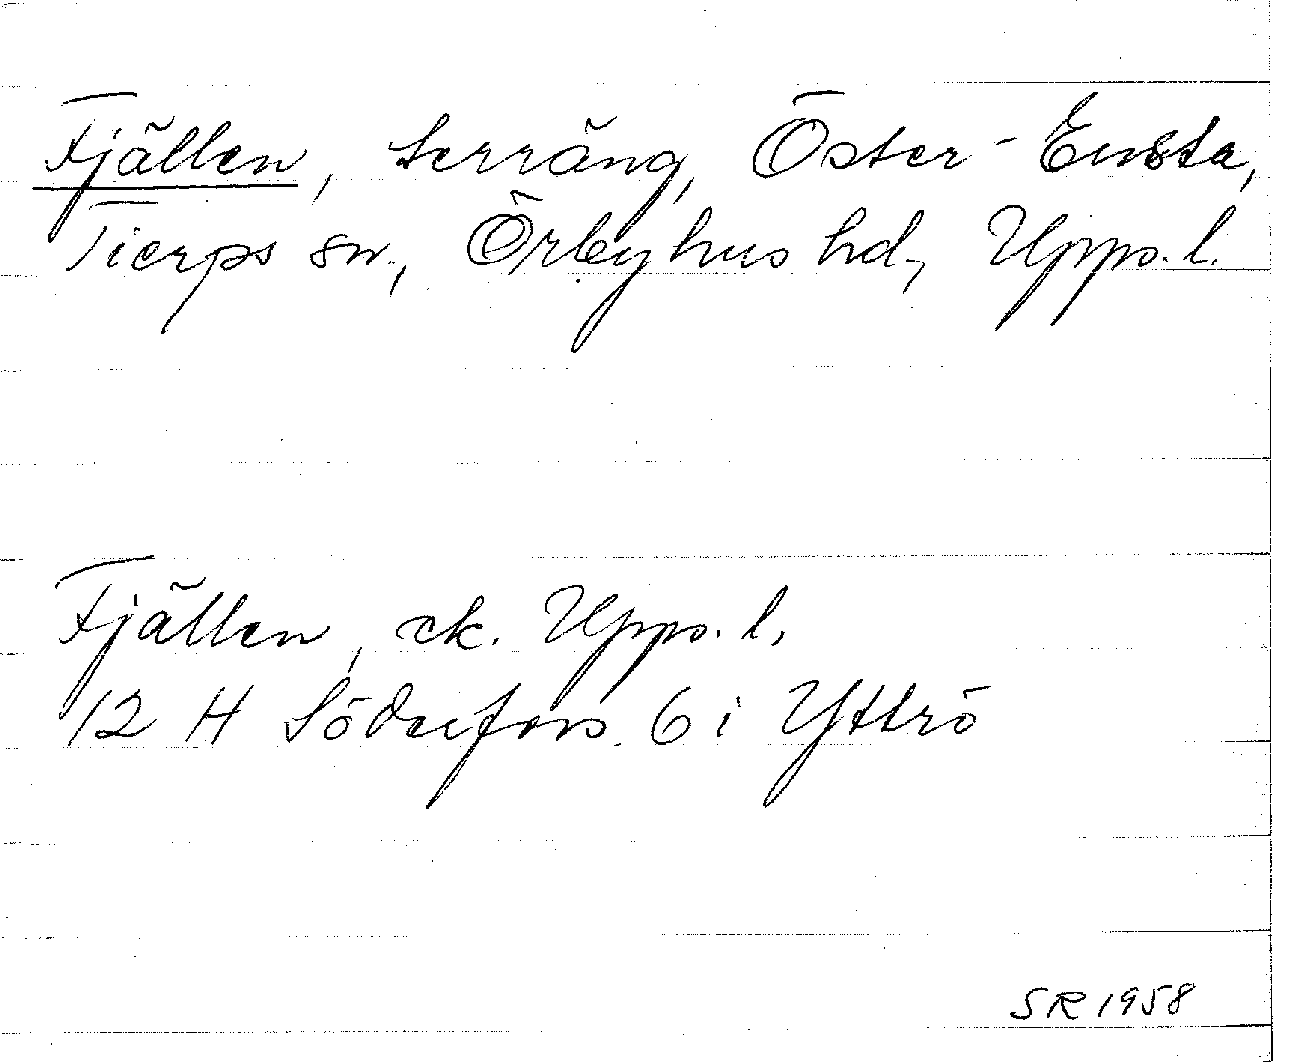 Fjällen, terräng, Öster-Ensta,
Tierps sn., Örbyhus hd., Upps. l.
Fjällen, ek. Upps. l.
12 H Söderfors 6 i Yttrö
SR 1958